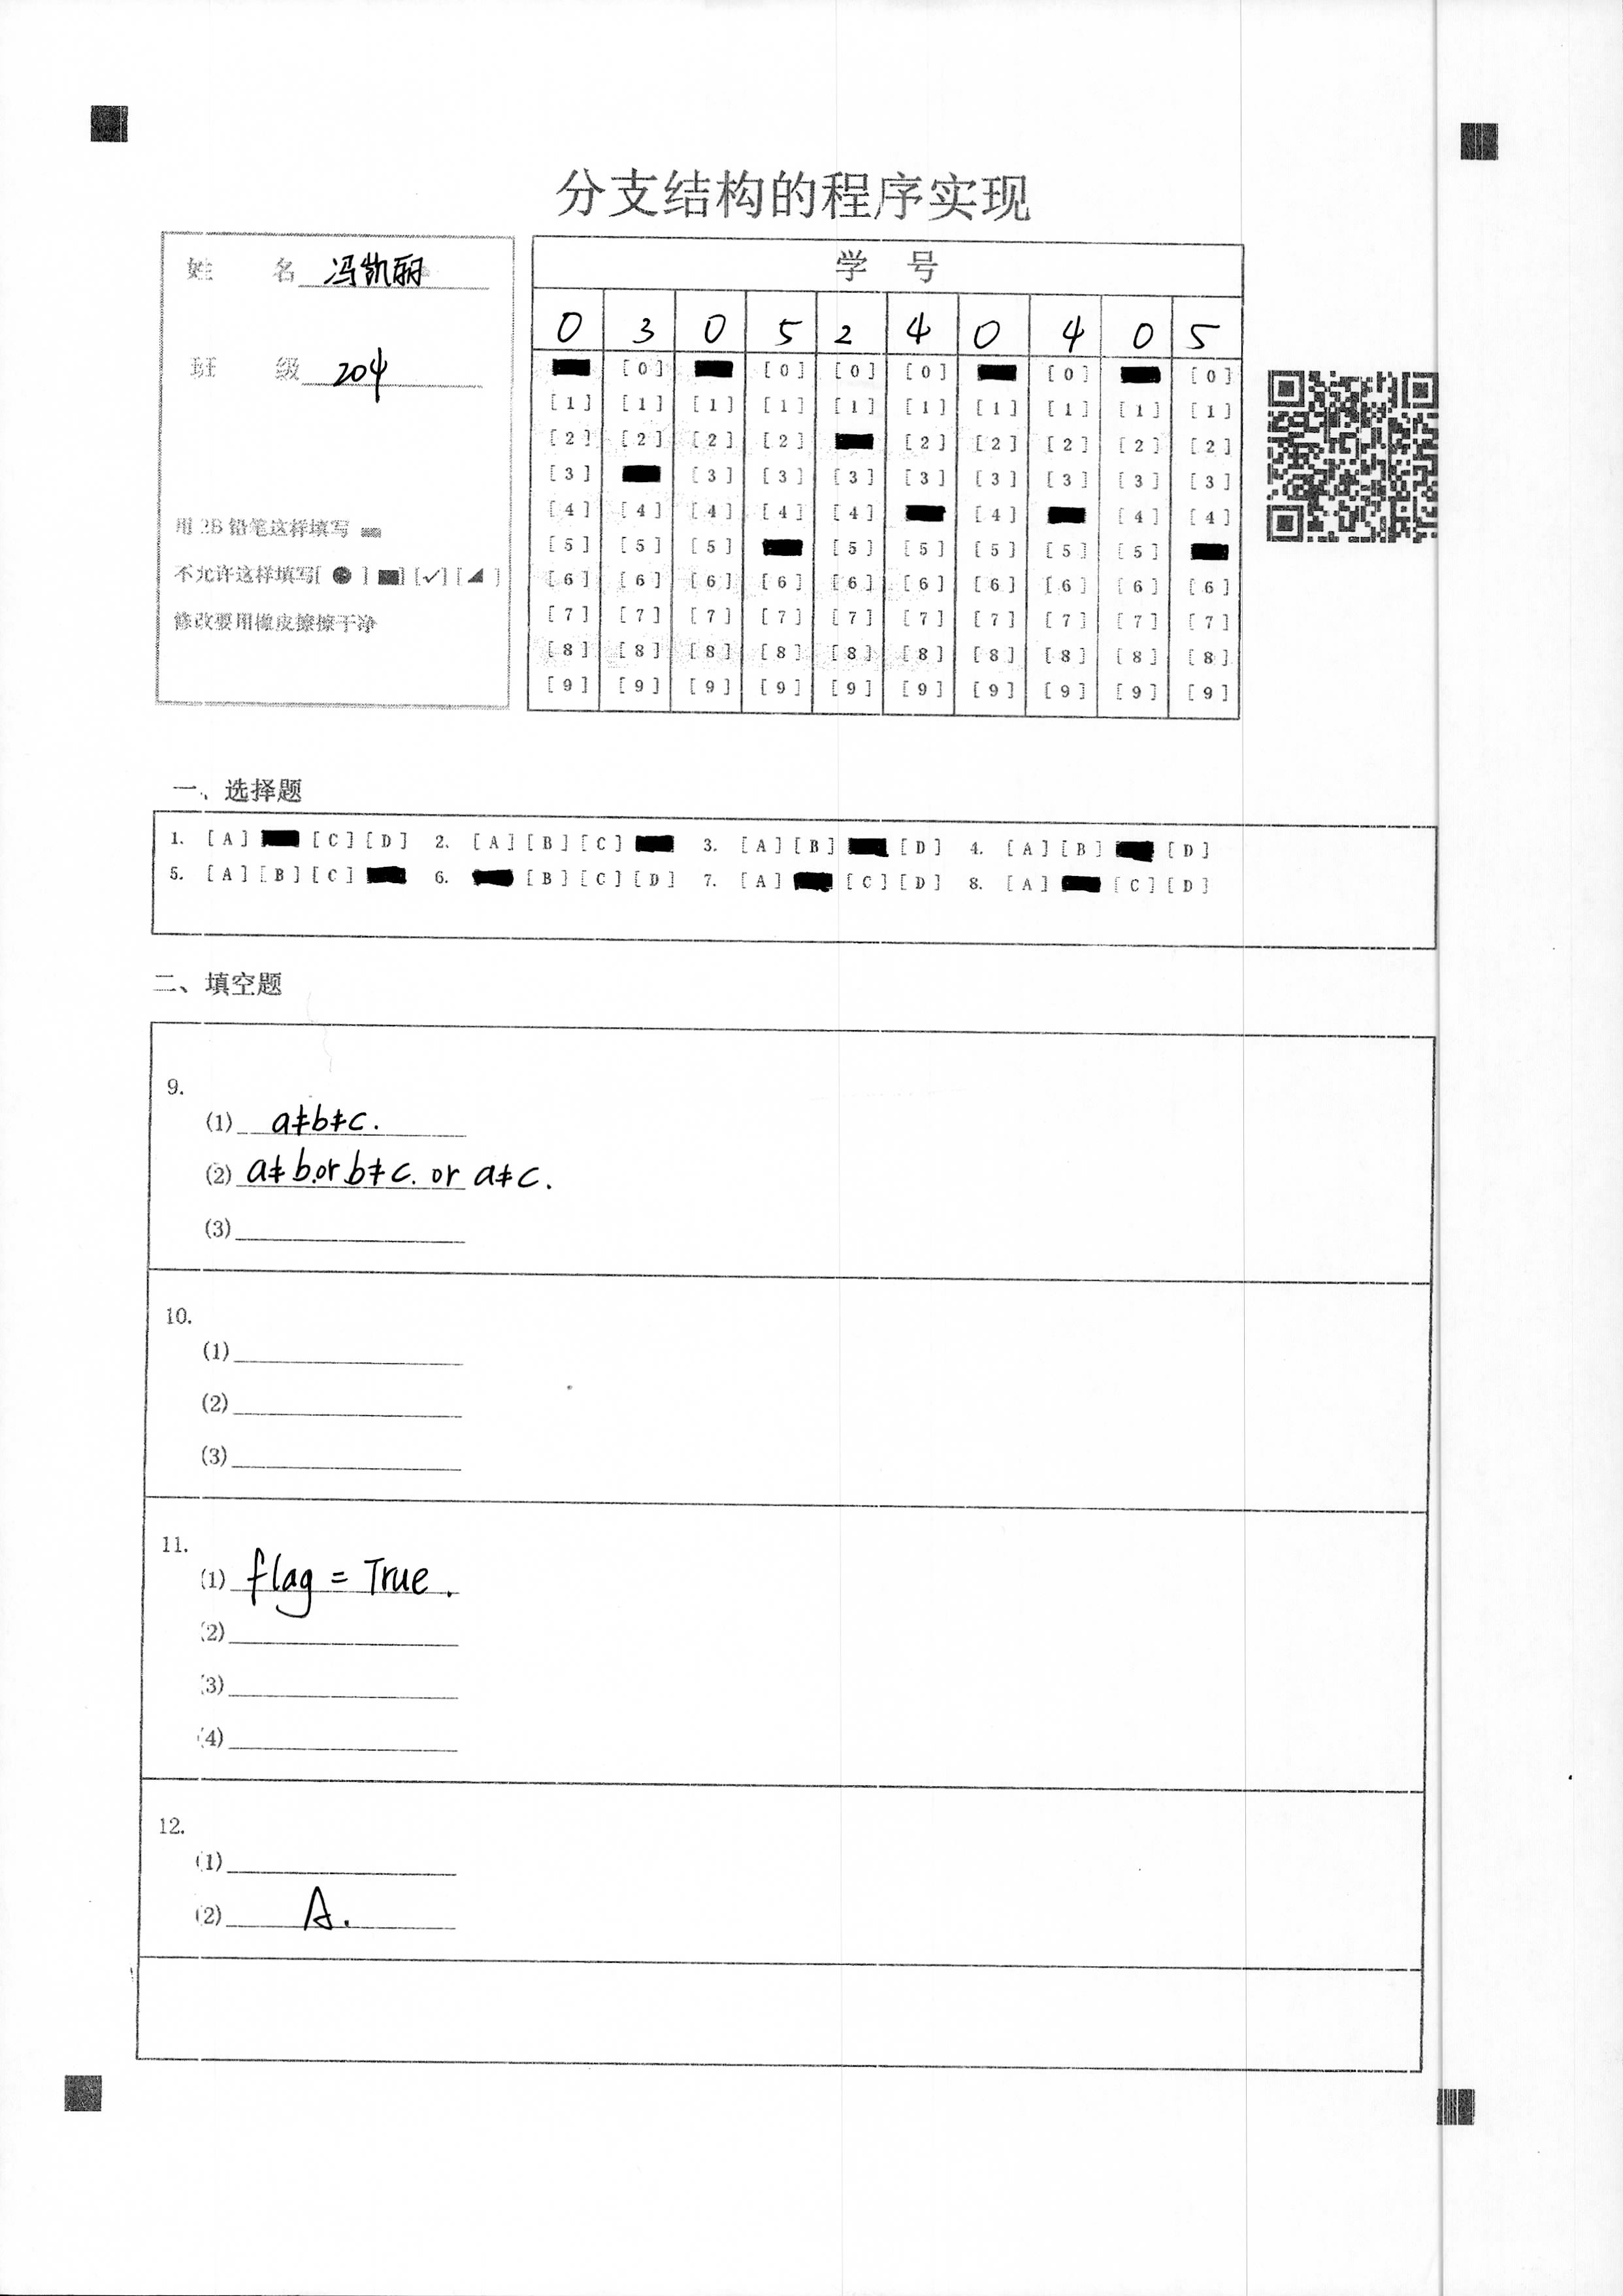 分支结构的程序实现
姓 名 冯凯丽
班 级 204
用2B铅笔这样填写
不允许这样填写[ ● ] [■] [✓] [◢ ]
修改要用橡皮擦擦干净
学 号
0 3 0 5 2 4 0 4 0 5
[0] [0] [0] [0] [0] [0]
[1] [1] [1] [1] [1] [1] [1] [1] [1] [1]
[2] [2] [2] [2] [2] [2] [2] [2] [2]
[3] [3] [3] [3] [3] [3] [3] [3] [3]
[4] [4] [4] [4] [4] [4] [4] [4]
[5] [5] [5] [5] [5] [5] [5] [5]
[6] [6] [6] [6] [6] [6] [6] [6] [6] [6]
[7] [7] [7] [7] [7] [7] [7] [7] [7] [7]
[8] [8] [8] [8] [8] [8] [8] [8] [8] [8]
[9] [9] [9] [9] [9] [9] [9] [9] [9] [9]
一、选择题
1. [A] [C] [D] 2. [A] [B] [C] 3. [A] [B] [D] 4. [A] [B] [D]
5. [A] [B] [C] 6. [B] [C] [D] 7. [A] [C] [D] 8. [A] [C] [D]
二、填空题
9.
(1) a≠b≠c.
(2) a≠b.or b≠c. or a≠c.
(3)
10.
(1)
(2)
(3)
11.
(1) flag = True.
(2)
(3)
(4)
12.
(1)
(2) A.